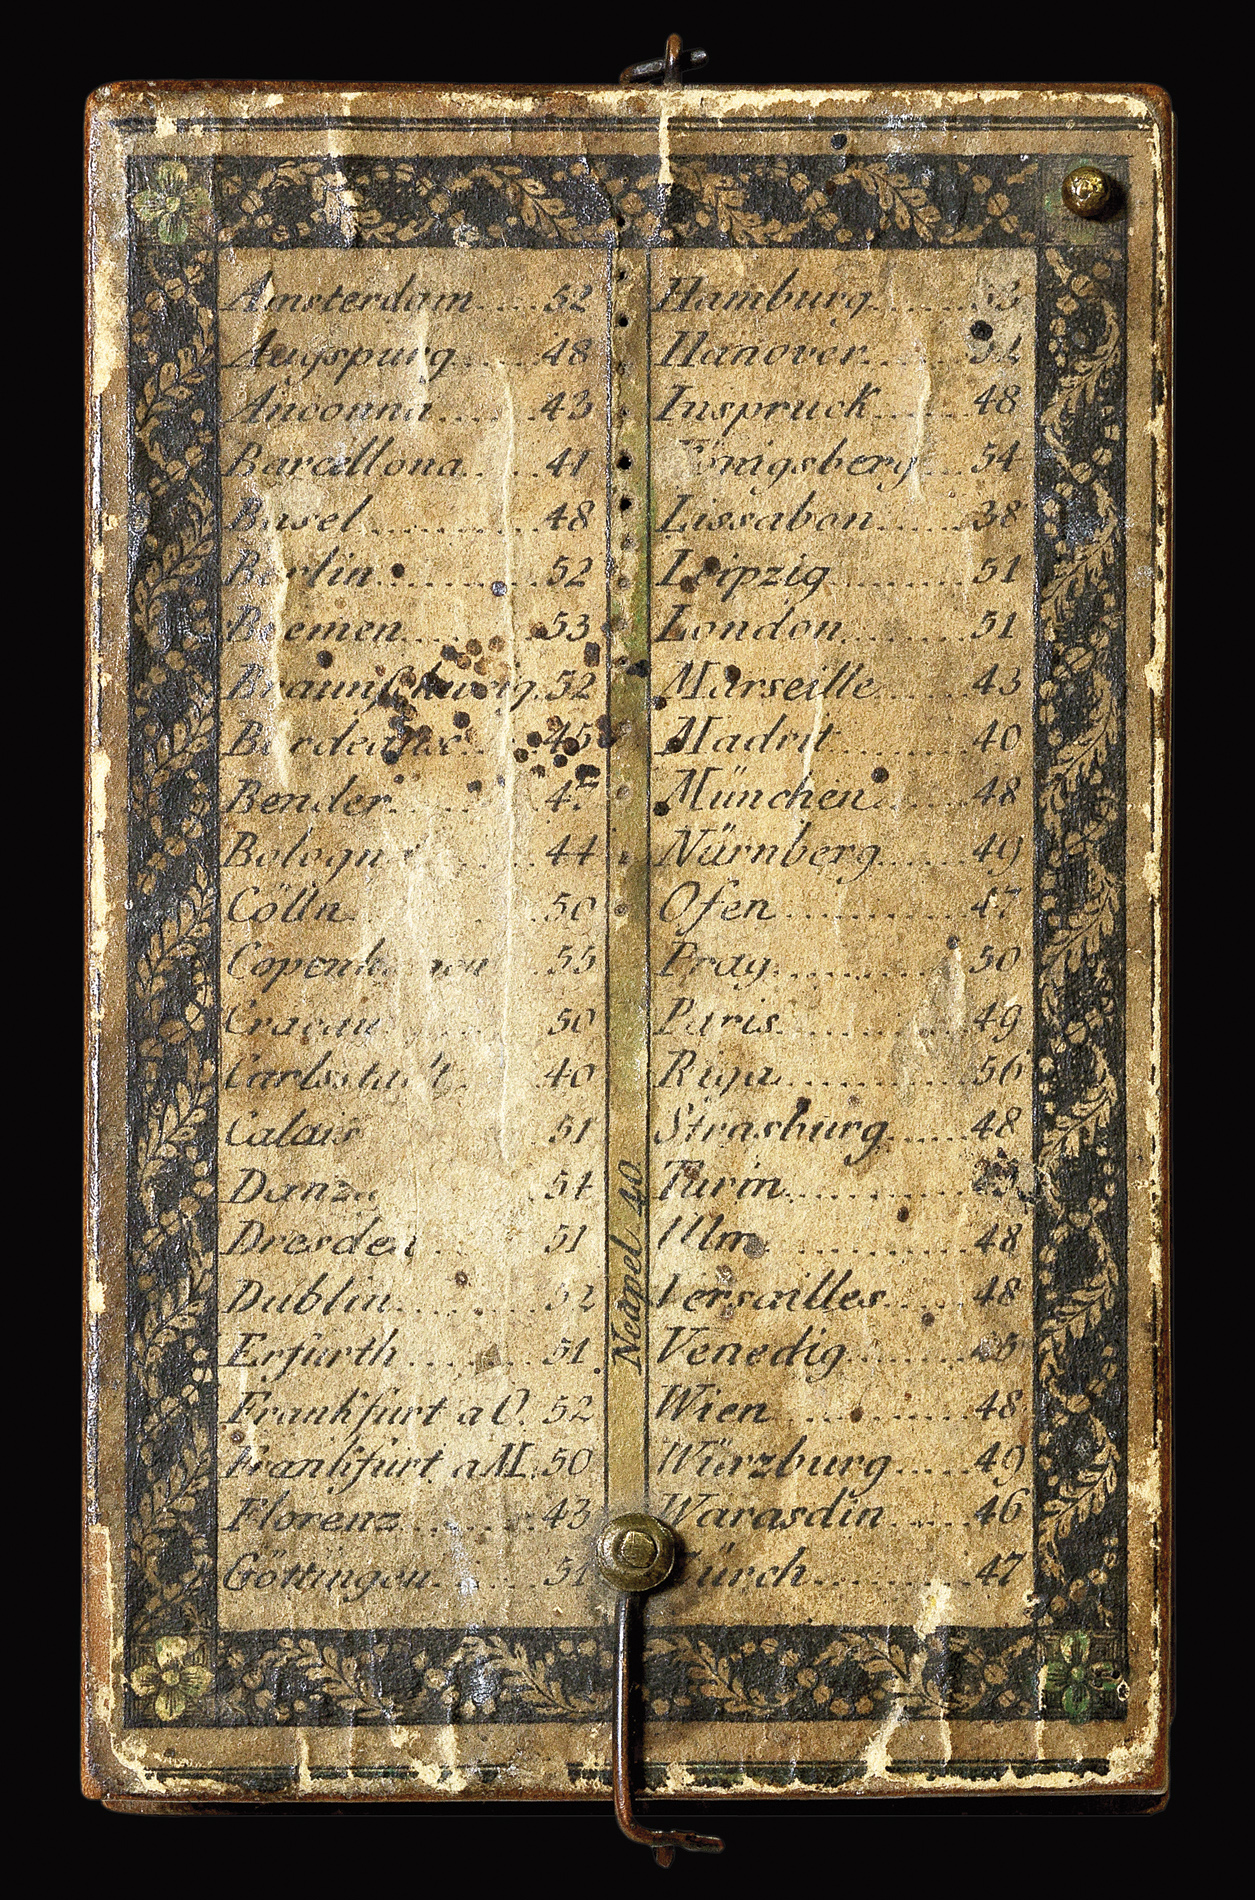 Amsterdam.....52
Augspurg.....48
Anconna.....43
Barcellona.....41
Basel.....48
Berlin.....52
Bremen.....53
Braunschweig.52
Bordeaux.....45
Bender.....47
Bologn.....44
Cölln.....50
Copenhagen...55
Cracau.....50
Carlsstadt.....40
Calais.....51
Danz.....54
Dresden.....51
Dublin.....52
Erfurth.....51.
Frankfurt a O. 52
Frankfurt a M. 50
Florenz.....43
Göttingen.....51
Neapel 40
Hamburg.....53
Hanover.....52
Inspruck.....48
Königsberg.....54
Lissabon.....38
Leipzig.....51
London.....51
Marseille.....43
Madrit.....40
München.....48
Nürnberg.....49
Ofen.....47
Prag.....50
Paris.....49
Riga.....56
Strasburg.....48
Turin.....
Ulm.....48
Versailles.....48
Venedig.....45
Wien.....48
Würzburg.....49
Warasdin.....46
Zürch.....47